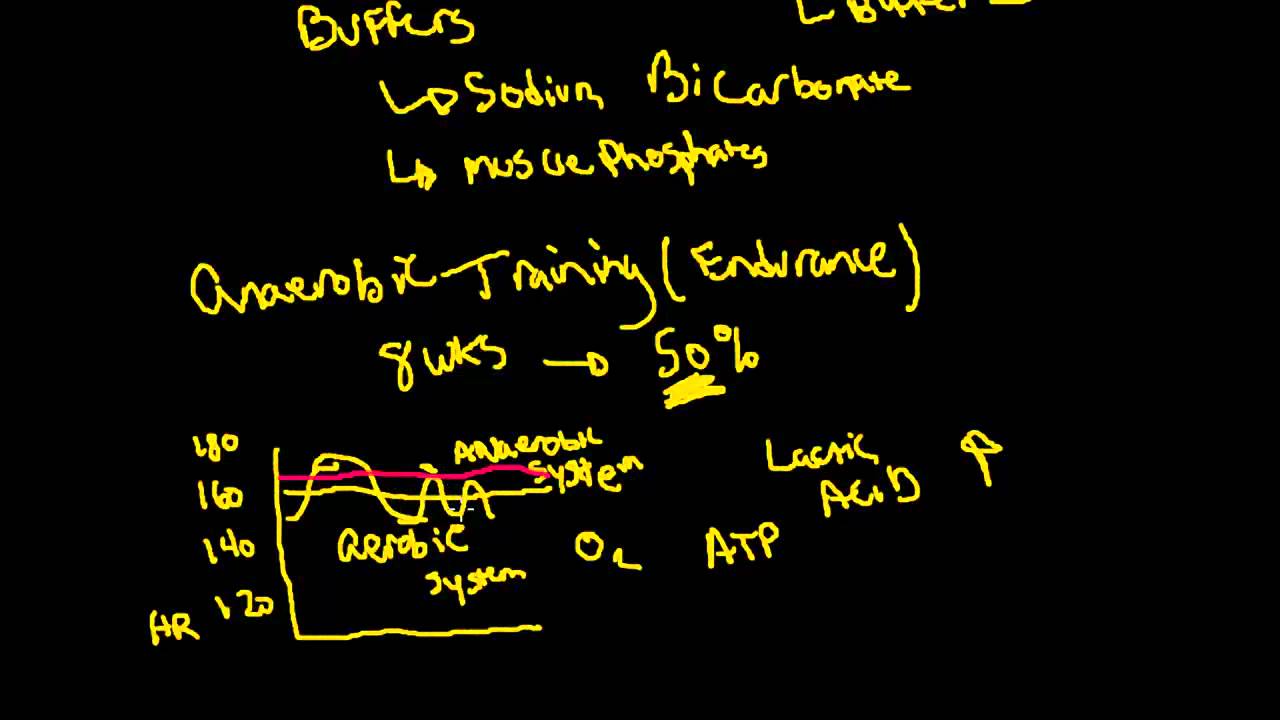 Buffers
↳ Buffer
↳ Sodium Bicarbonate
↳ muscle Phosphates
Anaerobic Training (Endurance)
8 wks → 50%
180
Anaerobic
System
Lactic
Acid ↑
160
140
Aerobic
System
O2
ATP
120
HR